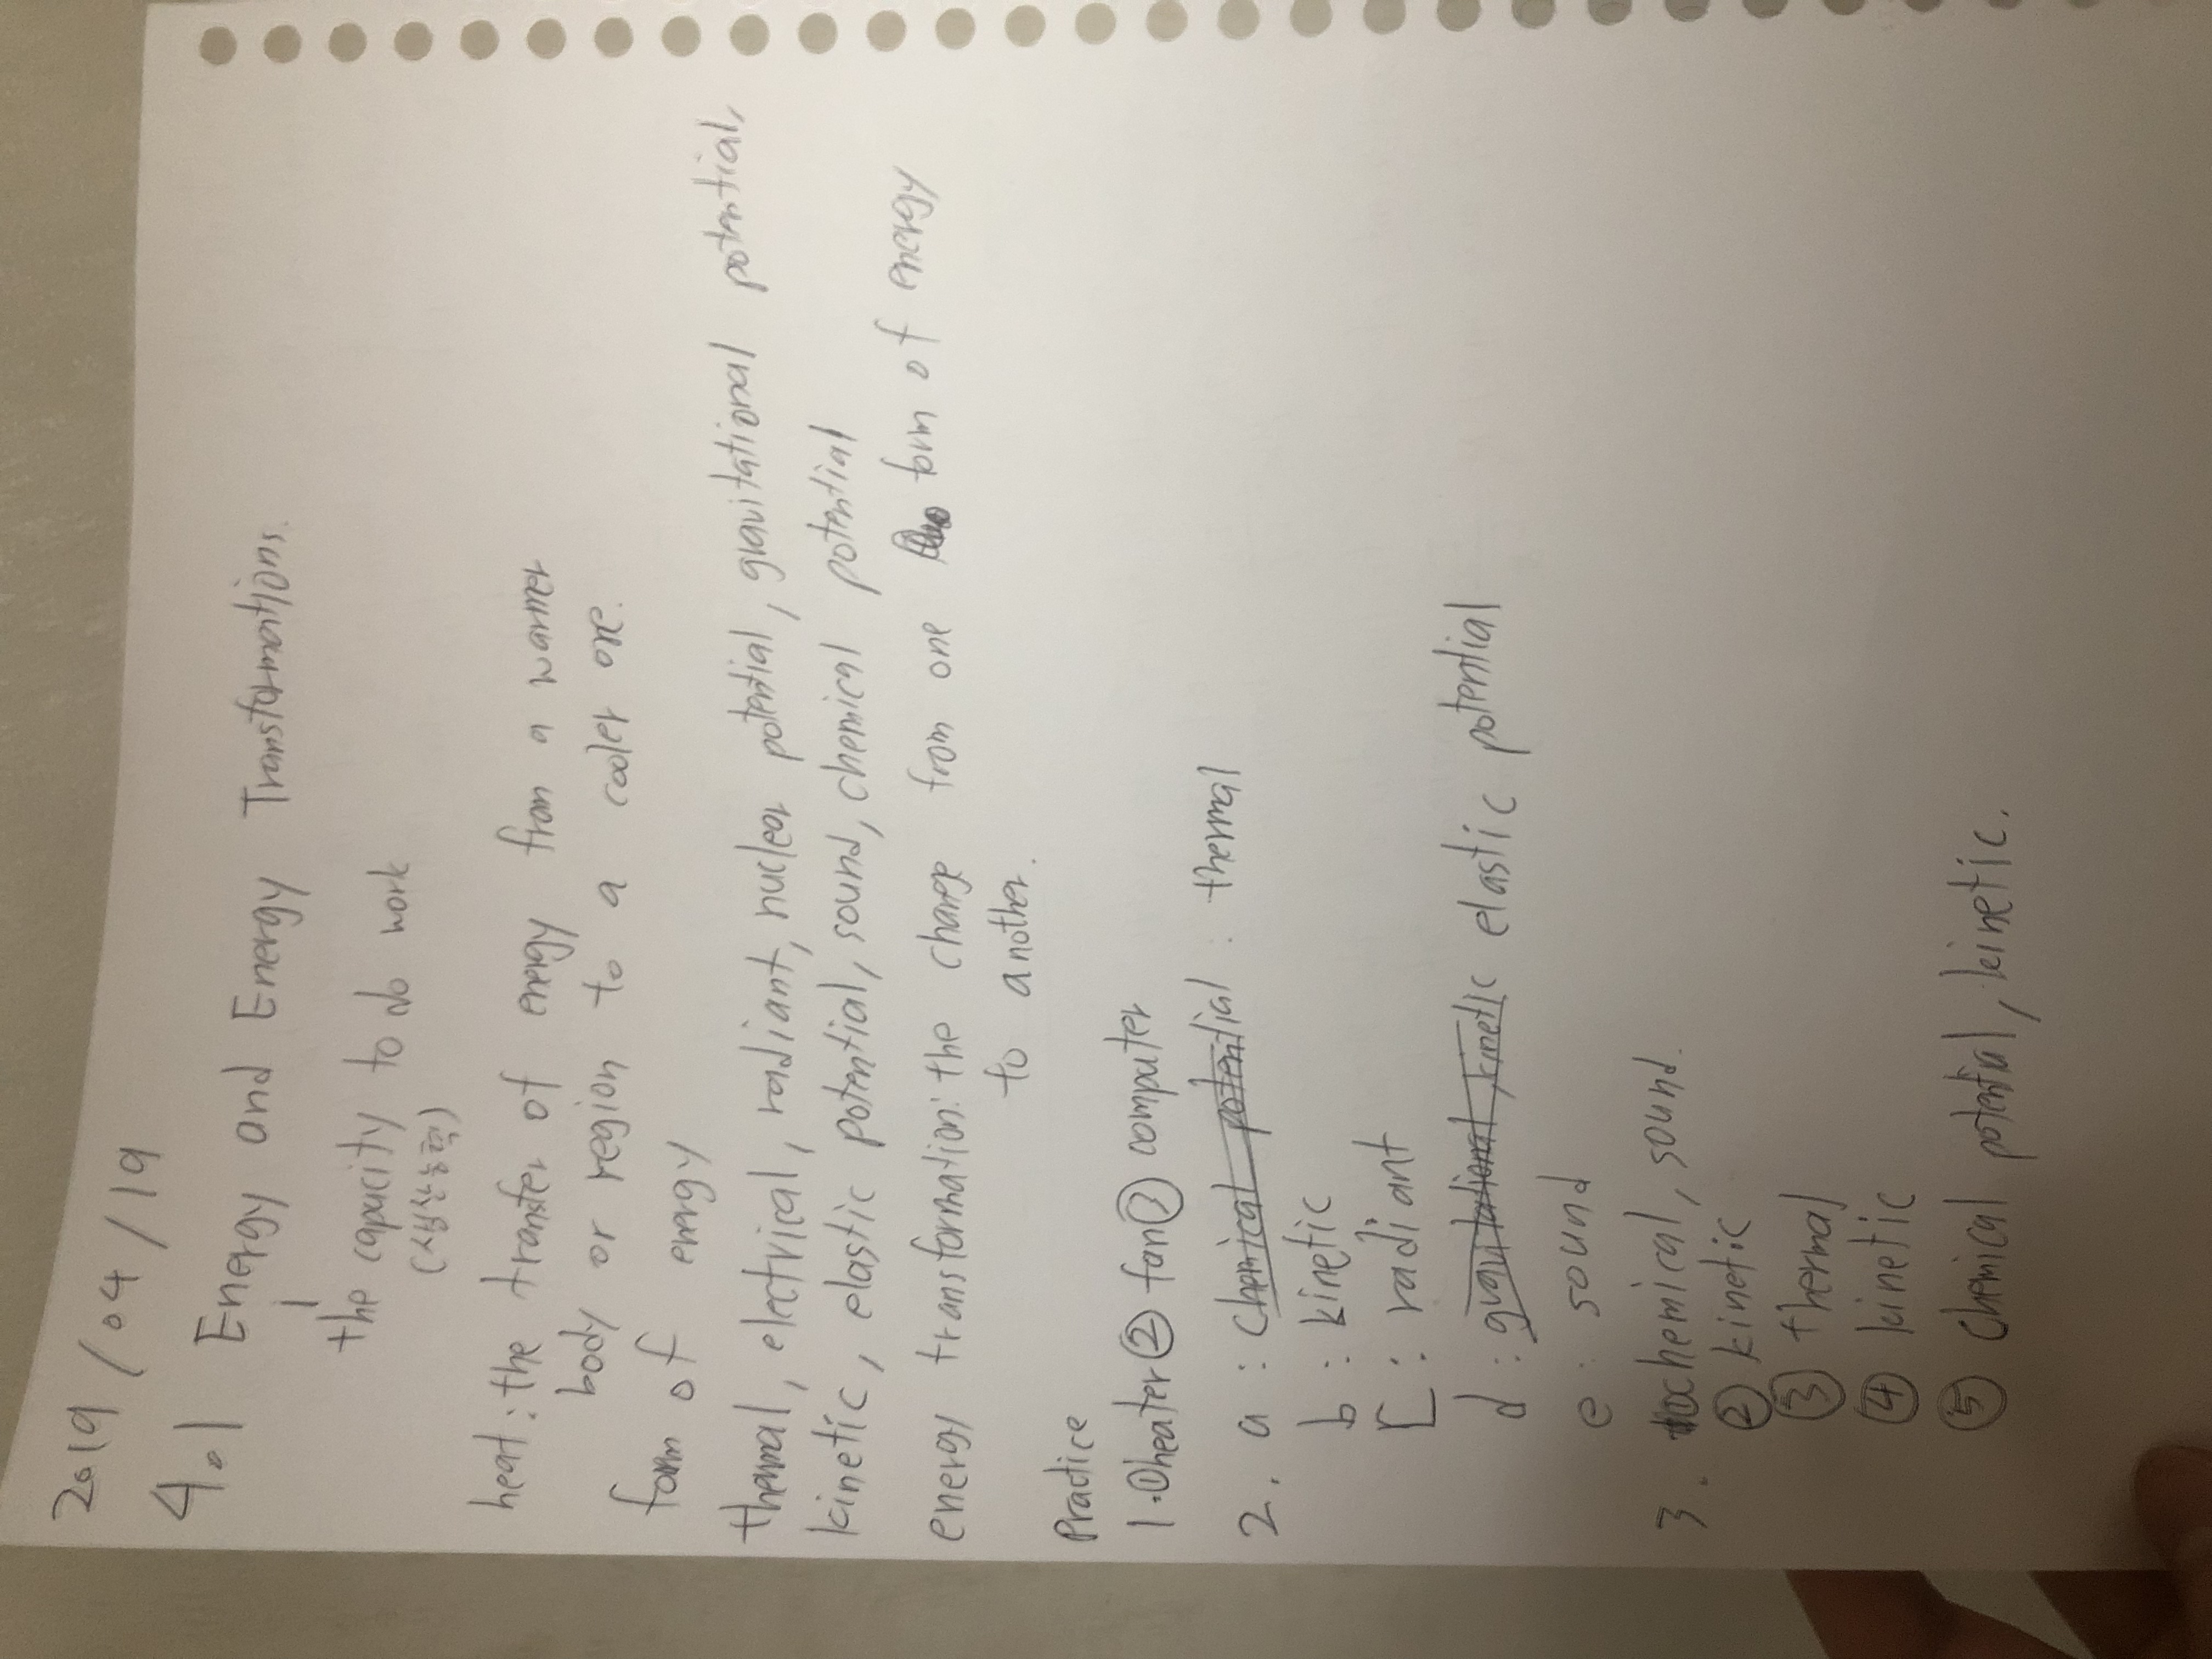 2019/04/19
4.1 Energy and Energy Transformations.
the capacity to do work
heat: the transfer of energy from a warmer
body or region to a cooler one.
form of energy
thermal, electrical, radiant, nuclear potential, gravitational potential,
kinetic, elastic potential, sound, chemical potential
energy transformation: the change from one form of energy
to another.
Practice
1. ① heater ② fan ③ computer
2. a : chemical potential : thermal
b : kinetic
C : radiant
d : gravitational, kinetic elastic potential
e : sound
3. chemical, sound.
② kinetic
③ thermal
④ kinetic
⑤ chemical potential, kinetic.